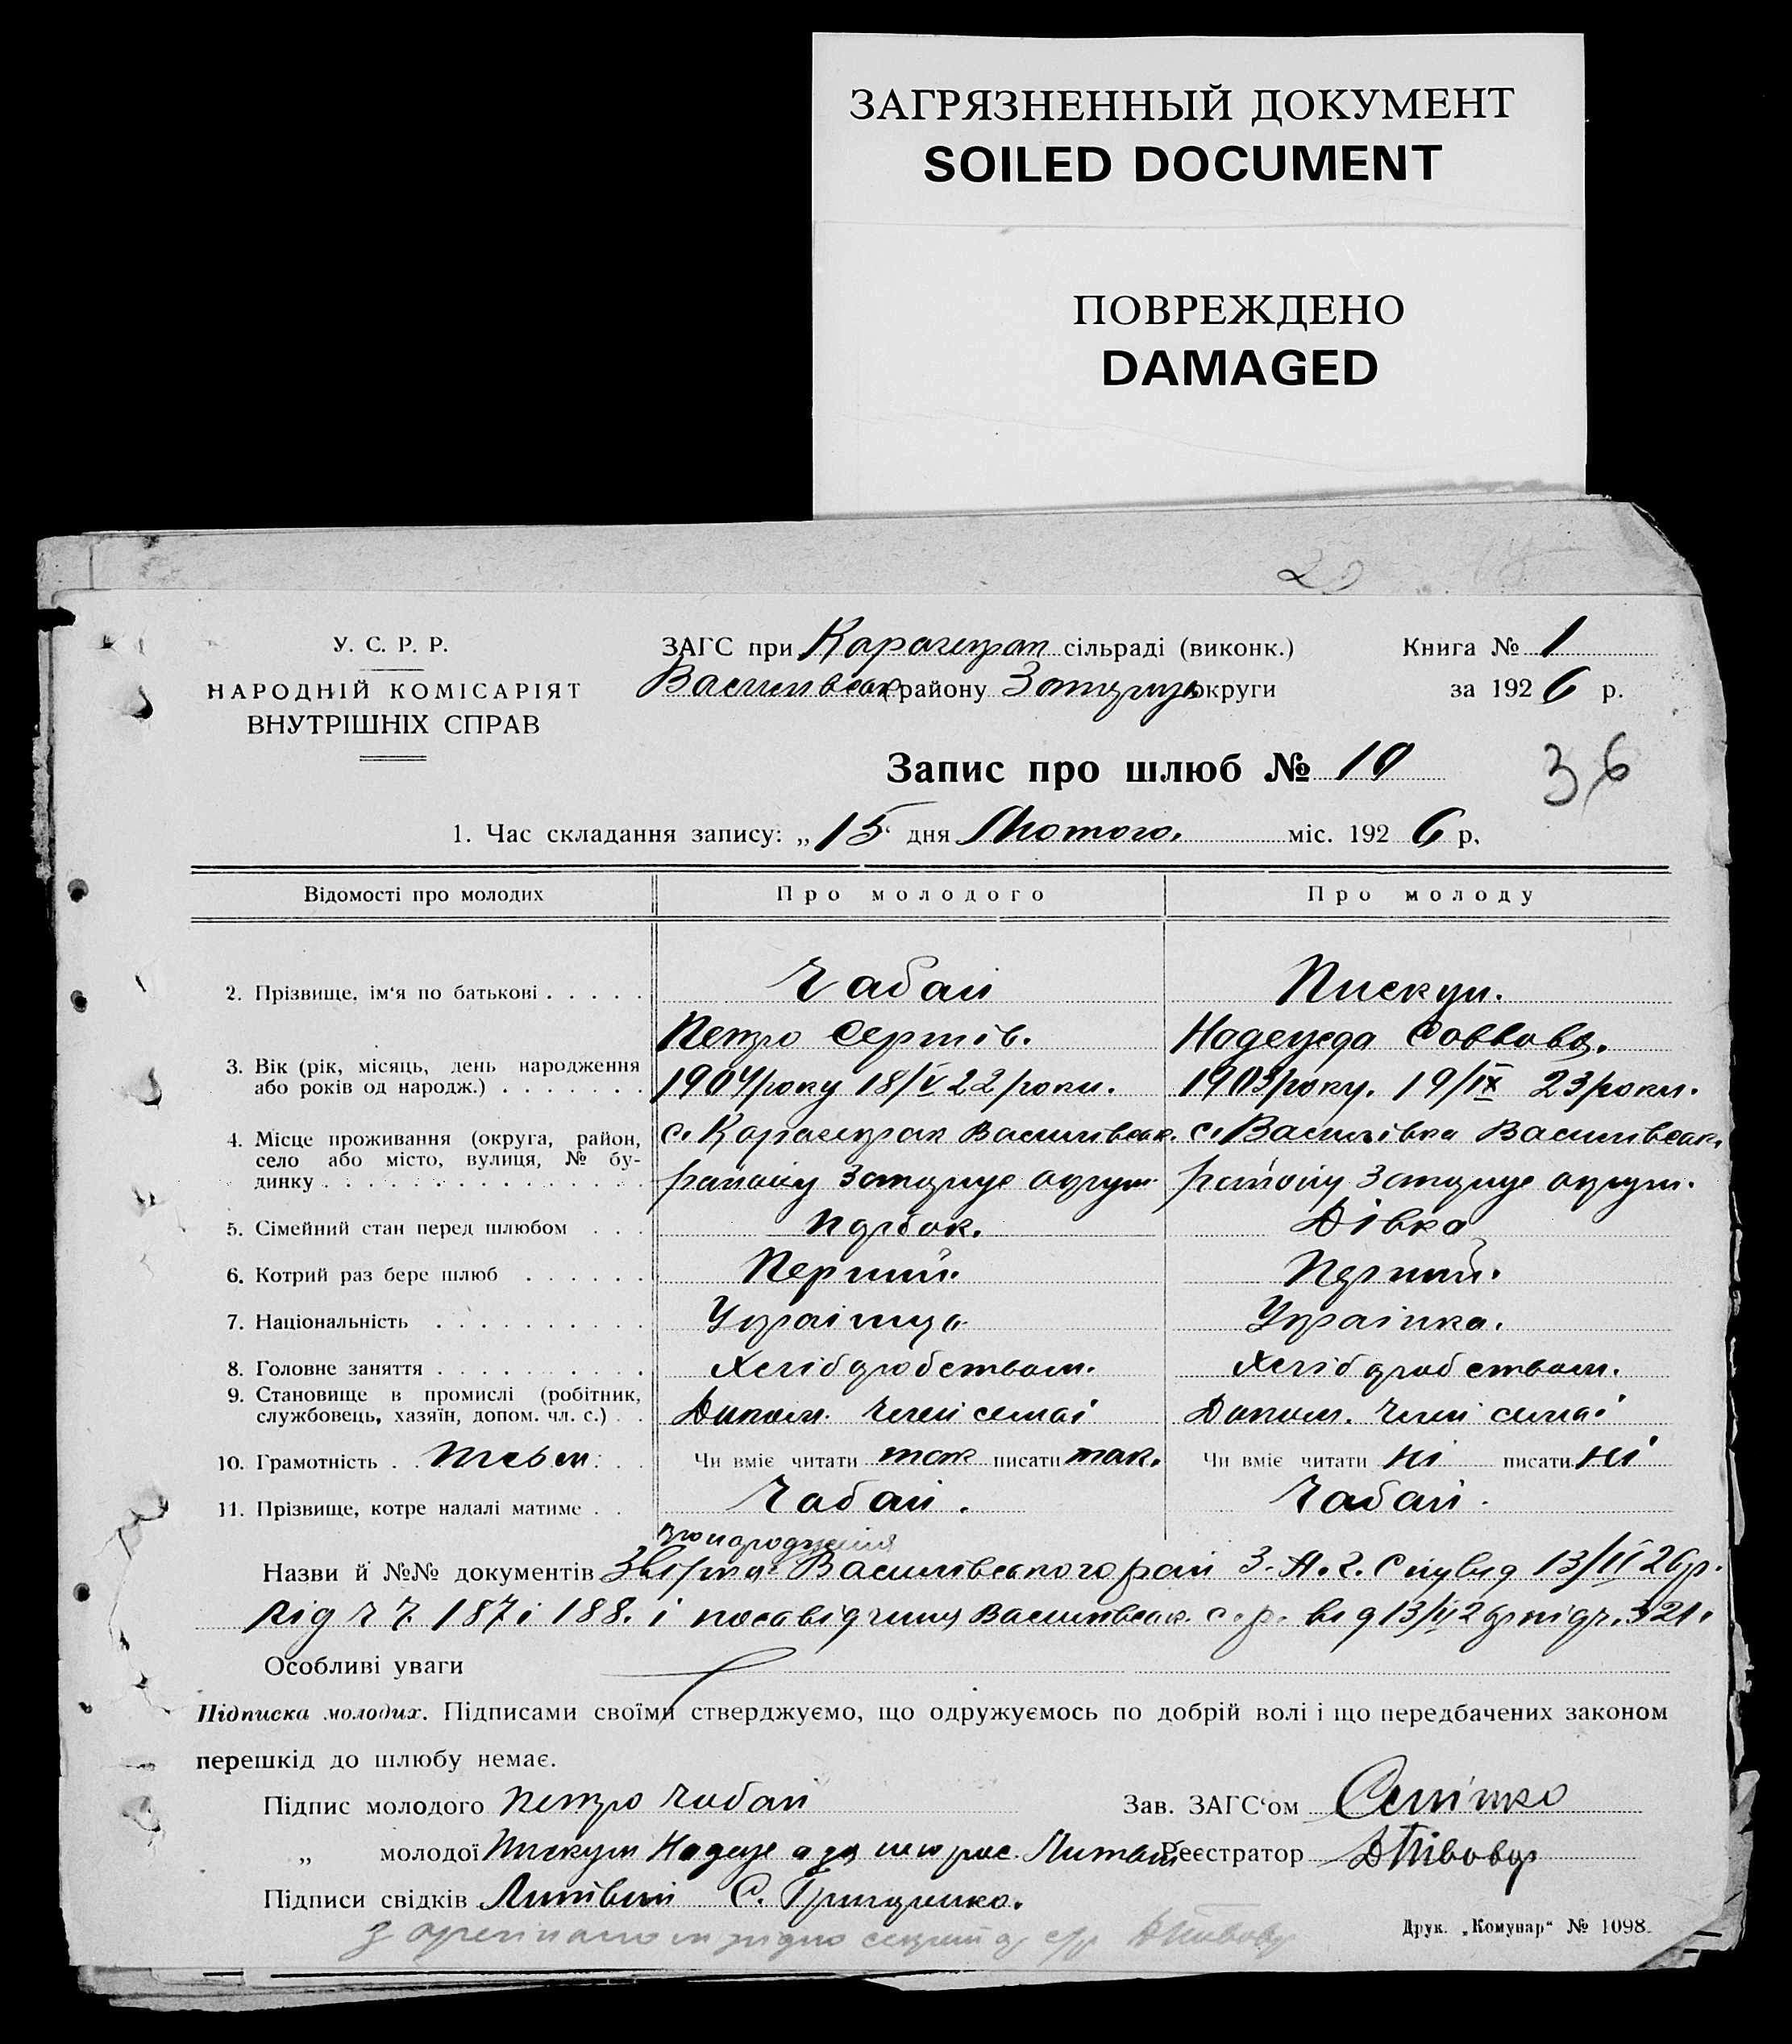 ЗАГРЯЗНЕННЫЙ ДОКУМЕНТ
SOILED DOCUMENT
ПОВРЕЖДЕНО
DAMAGED
20
У. С. Р. Р.
НАРОДНІЙ КОМІСАРІЯТ
ВНУТРІШНІХ СПРАВ
ЗАГС при Карачекрак сільраді (виконк.) Книга № 1
Василівськ району Запоріжь округи за 1926 р.
Запис про шлюб № 10
36
1. Час складання запису: „15" дня Лютого. міс. 1926 р.
Відомості про молодих Про молодого Про молоду
2. Прізвище, ім'я по батькові Чабан Пискун.
Петро Сергіїв. Надежда Савкова.
3. Вік (рік, місяць, день народження
або років од народж.) 1904 року 18/V 22 роки. 1903 року. 19/IX 23 роки.
4. Місце проживання (округа, район,
село або місто, вулиця, № бу-
динку с. Карачекрак Василівськ. с. Василівка Василівськ.
району Запоріжс округи. району Запоріжс округи.
5. Сімейний стан перед шлюбом Парубок. Дівка
6. Котрий раз бере шлюб Перший. Перший.
7. Національність Українца Українка.
8. Головне заняття Хліборобством. Хліборобством.
9. Становище в промислі (робітник,
службовець, хазяїн, допом. чл. с.) Допом. член семьї Допом. член семьї
10. Грамотність Чи вміє читати так писати так. Чи вміє читати ні писати ні
11. Прізвище, котре надалі матиме Чабан. Чабан.
про народження
Назви й №№ документів Василівського рай З.А.Г.С від 13/II 26 р.
під ч ч. 187 і 188. і посвідчина Василівськ. с.р. від 13/II 26 р під ч. 321.
Особливі уваги
Підписка молодих. Підписами своїми стверджуємо, що одружуємось по добрій волі і що передбачених законом
перешкід до шлюбу немає.
Підпис молодого Петро Чабан Зав. ЗАГС'ом
„ молодої Пискун Надежда Реєстратор
Підписи свідків Литвин С. Грищенко.
з орегіналом згідно секретар с/р
Друк. „Комунар" № 1098.